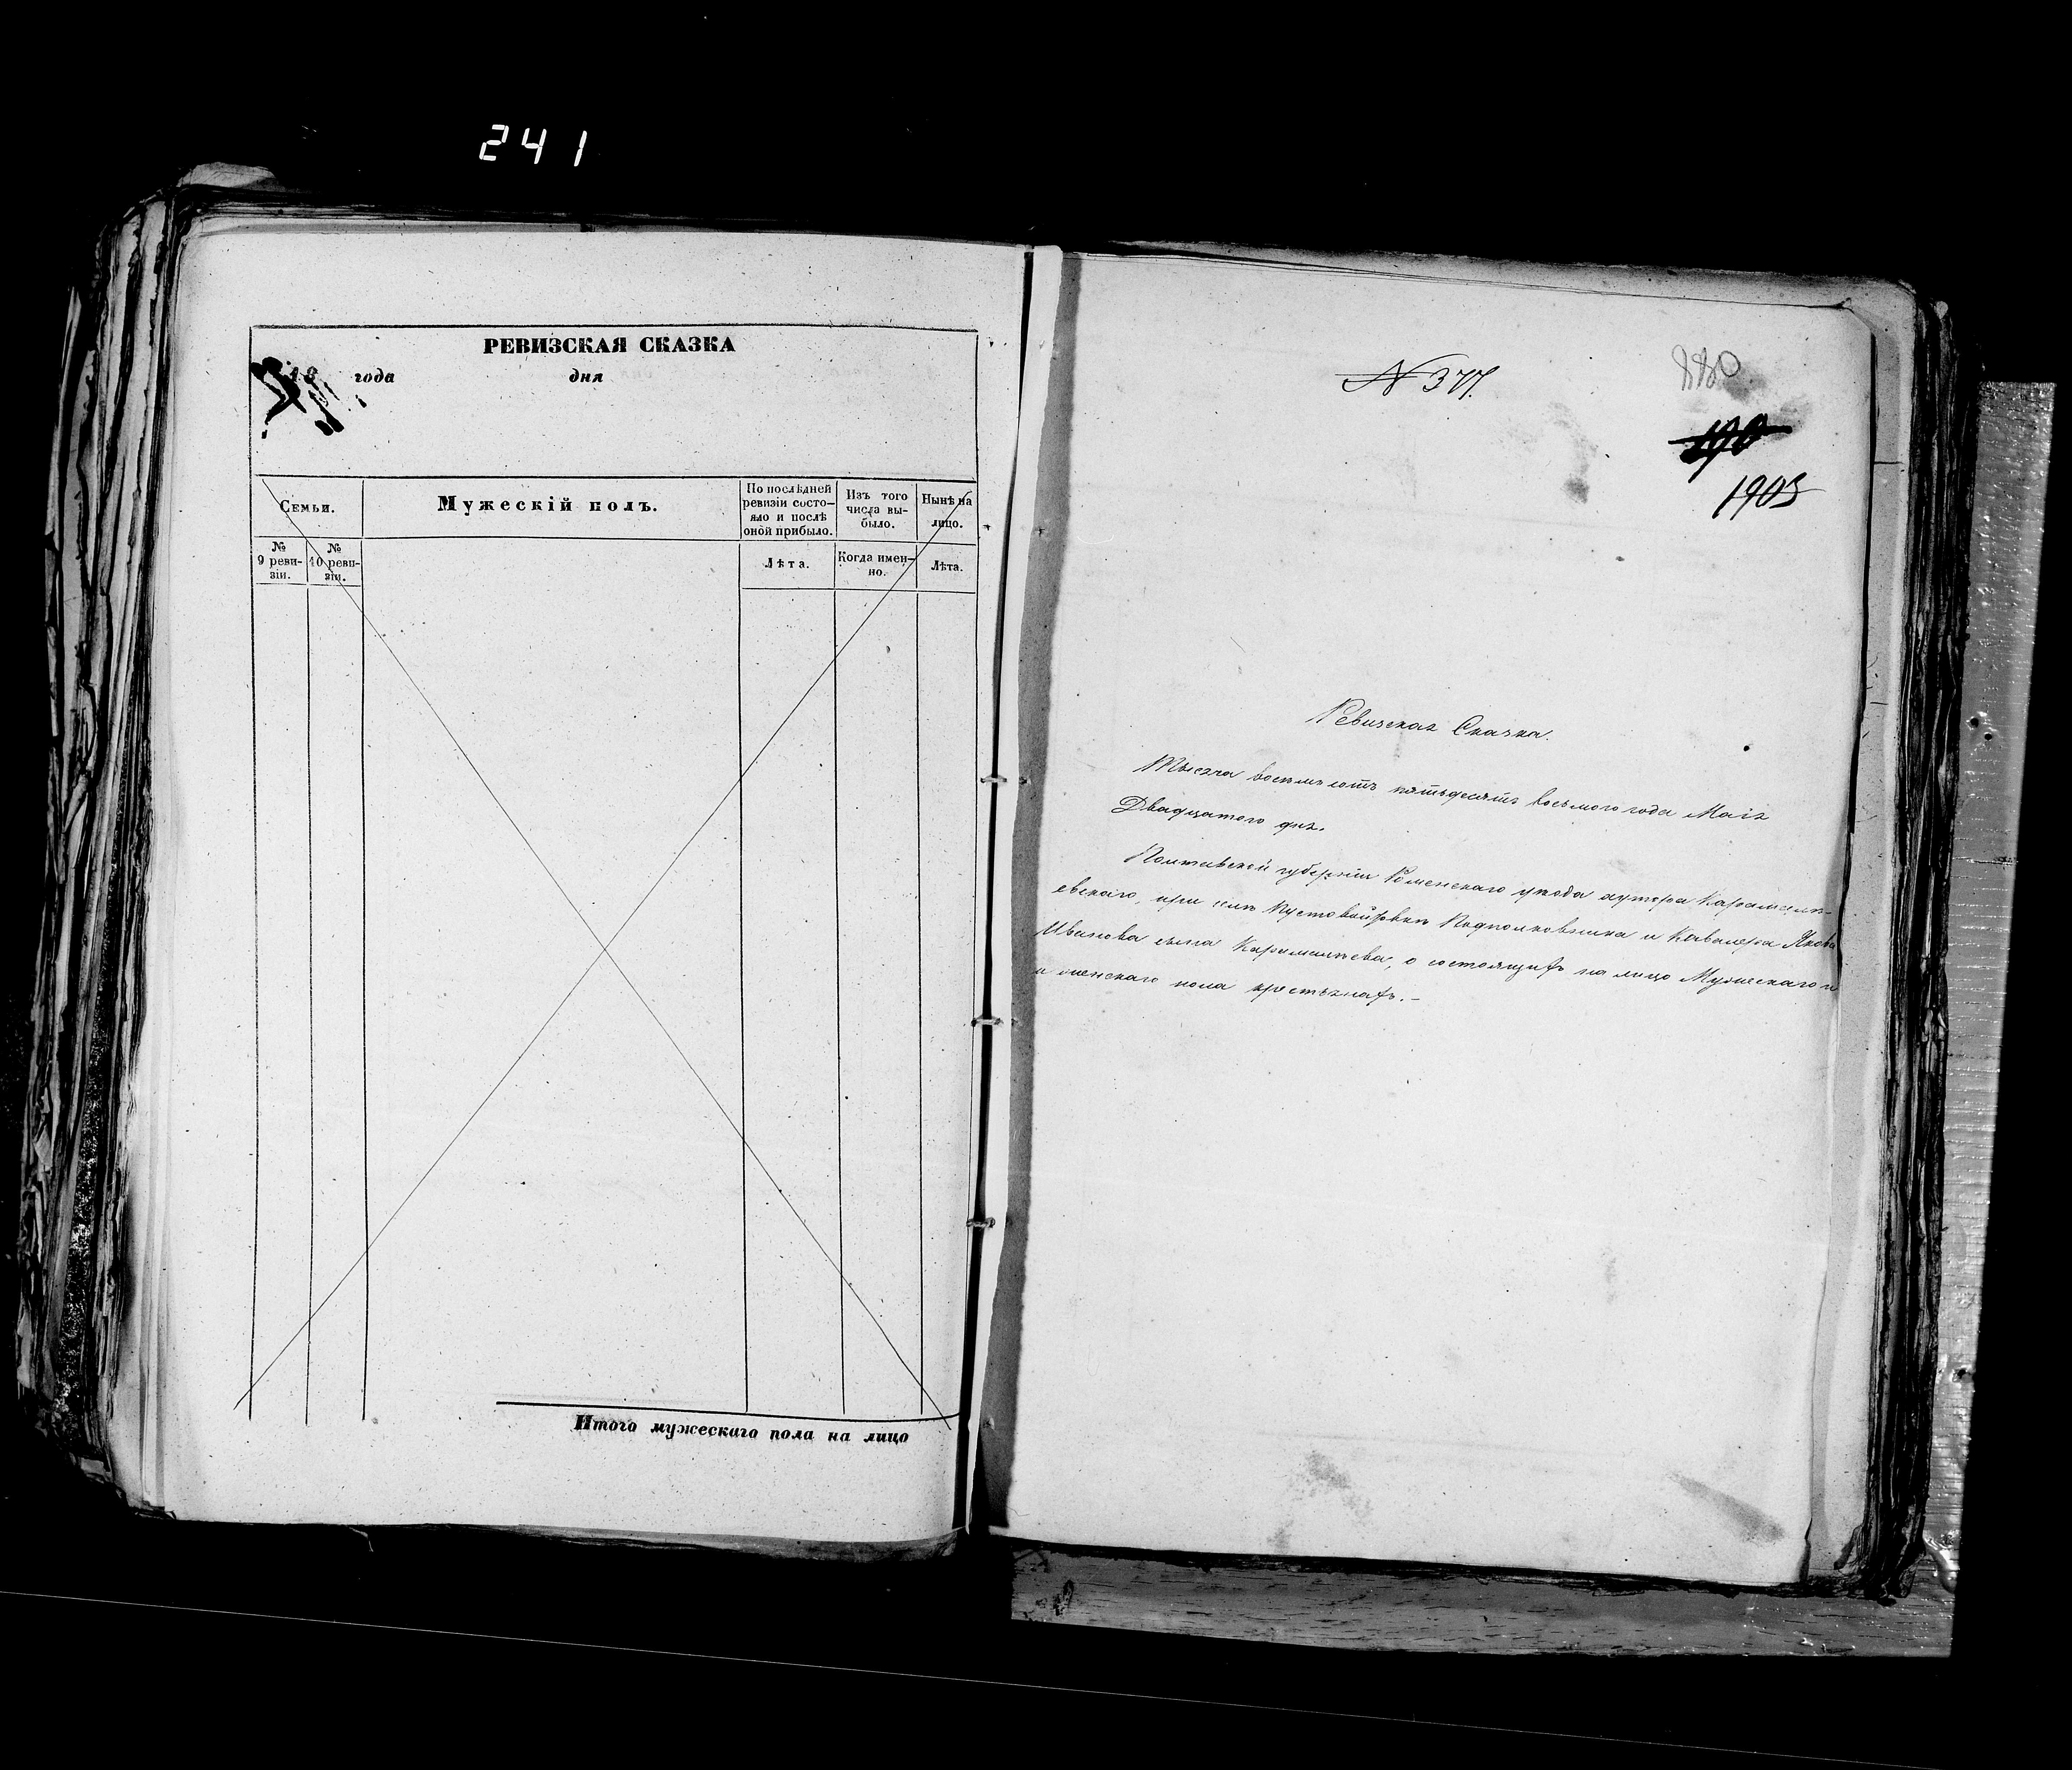 241
РЕВИЗСКАЯ СКАЗКА
18 года дня
Семьи.
Мужескій полъ.
По послѣдней ревизіи состо-
яло и послѣ оной прибыло.
Изъ того числа вы-
было.
Нынѣ на лицо.
№ 9 реви-
зіи.
№ 10 реви-
зіи.
Лѣта.
Когда имен-
но.
Лѣта.
Итого мужескаго пола на лицо
N 377.
880
190
1903
Ревизская Сказка.
Тысяча восемьсотъ пятьдесятъ восьмого года Маія
Двадцатого дня.
Полтавской губерніи Роменскаго уезда хутора Карамалѣ-
евскаго, при селѣ Пустовойтовкѣ Подполковника и Кавалера Якова
Иванова сына Карамалѣева, о состоящихъ на лицо Мужескаго и
и женскаго пола крестьянахъ.-